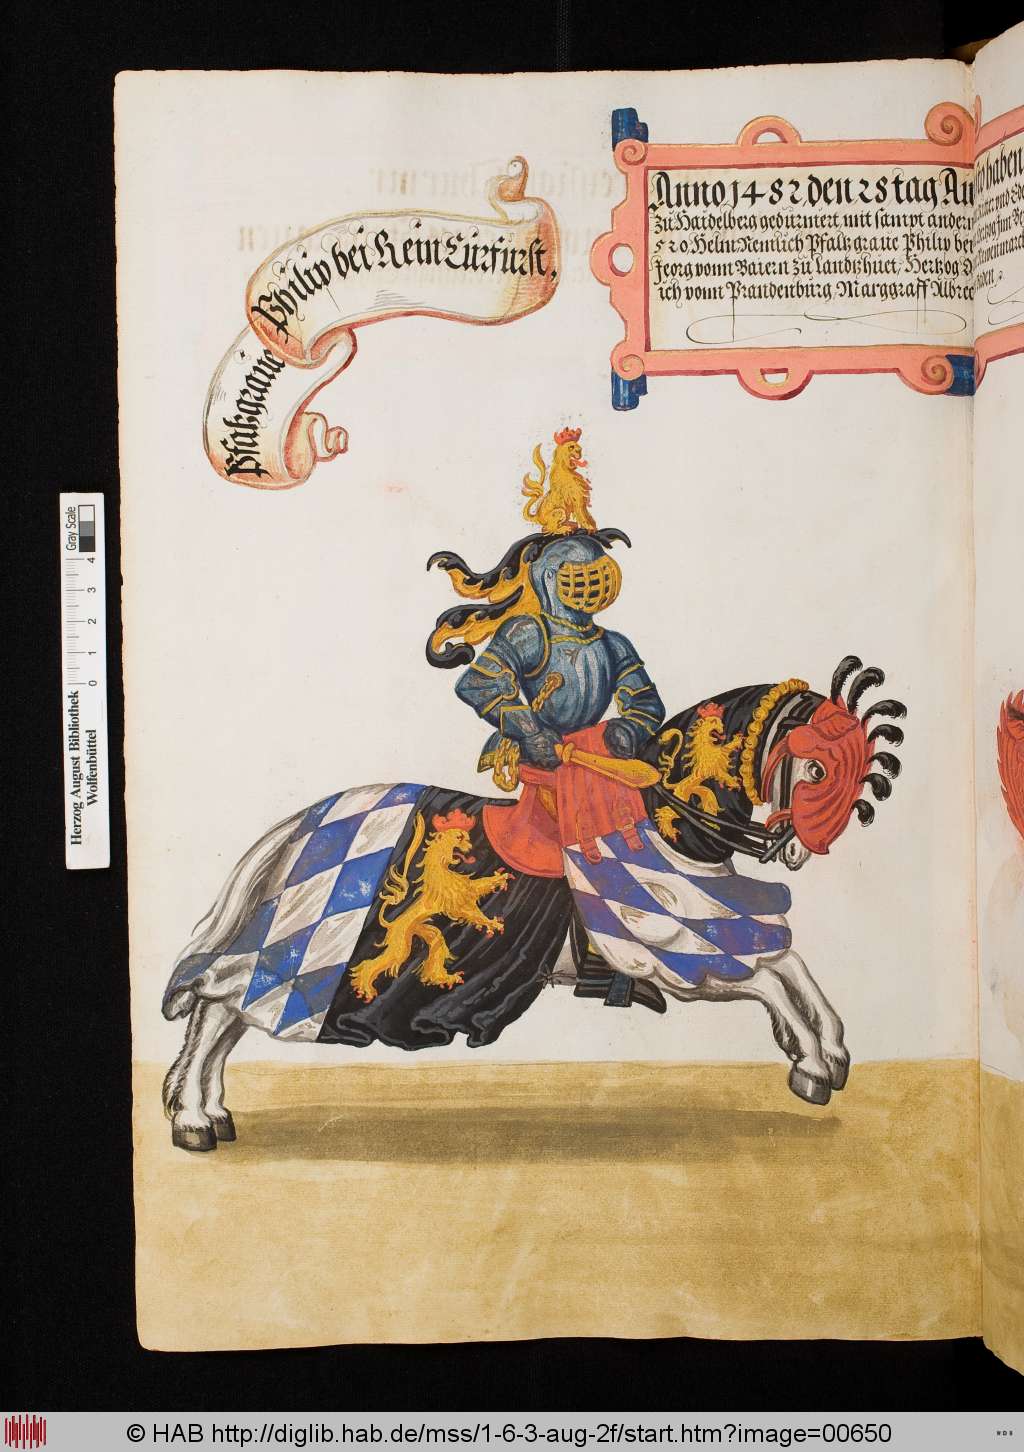 Pfaltzgraue Philip bei Rein Curfurst,
Anno 1482 den 28 tag Au
zu Haidelberg gedurniert mit sampt andern
520 Helm Nemlich Pfaltzgraue Philip bey
Jeorg vonn Baiern zu Landtzhuet, Hertzog
ich vonn Prandenburg, Marggraff Albrec
haben
vnd
Gray Scale
4
3
2
1
0
Herzog August Bibliothek
Wolfenbüttel
© HAB http://diglib.hab.de/mss/1-6-3-aug-2f/start.htm?image=00650